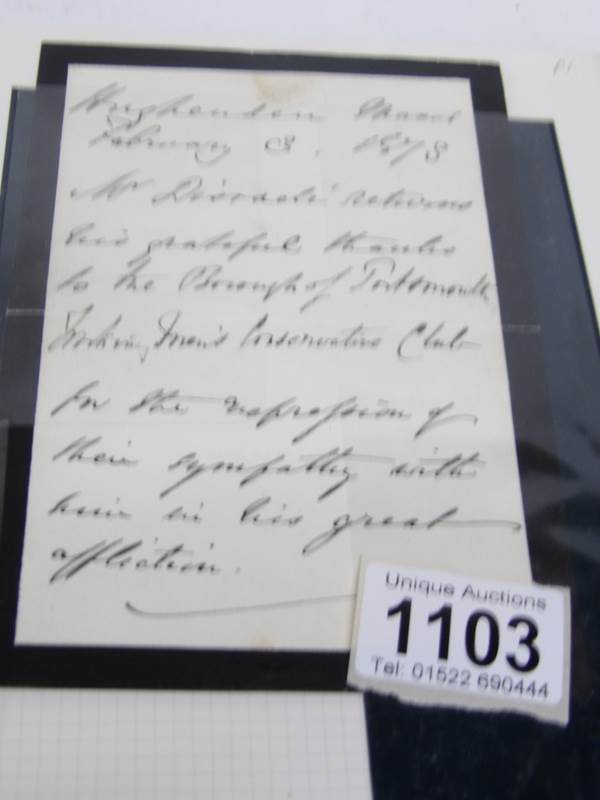 Hughenden Manor
February 3. 1873
Mr Disraeli returns
his grateful thanks
to the Borough of Portsmouth
Working Men's Conservative Club
for the expression of
their sympathy with
him in his great
affliction.
Unique Auctions
1103
Tel: 01522 690444